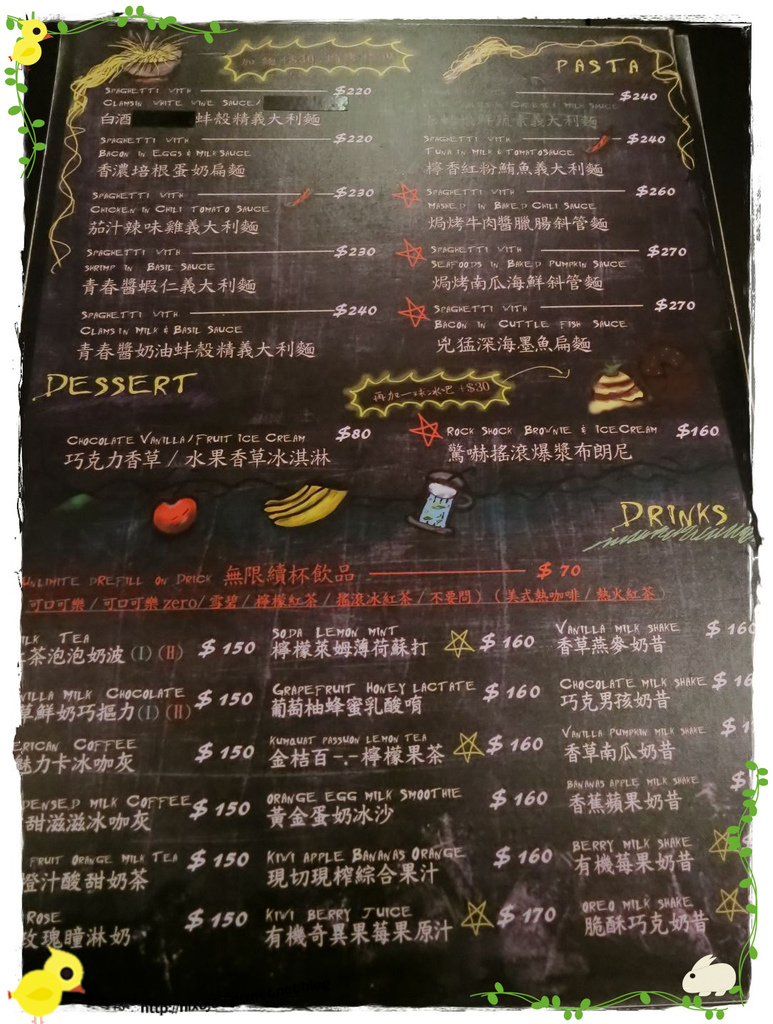 加麵 +$30
PASTA
SPAGHETTI WITH $220
CLAMS IN WHITE WINE SAUCE/
白酒 蚌殼精義大利麵
SPAGHETTI WITH $220
BACON IN EGGS & MILK SAUCE
香濃培根蛋奶扁麵
SPAGHETTI WITH $230
CHICKEN IN CHILI TOMATO SAUCE
茄汁辣味雞義大利麵
SPAGHETTI WITH $230
SHRIMP IN BASIL SAUCE
青春醬蝦仁義大利麵
SPAGHETTI WITH $240
CLAMS IN MILK & BASIL SAUCE
青春醬奶油蚌殼精義大利麵
$240
MILK SAUCE
鮮蔬素義大利麵
SPAGHETTI WITH $240
TUNA IN MILK & TOMATO SAUCE
檸香紅粉鮪魚義大利麵
SPAGHETTI WITH $260
MASHED IN BAKED CHILI SAUCE
焗烤牛肉醬臘腸斜管麵
SPAGHETTI WITH $270
SEAFOODS IN BAKED PUMPKIN SAUCE
焗烤南瓜海鮮斜管麵
SPAGHETTI WITH $270
BACON IN CUTTLE FISH SAUCE
兇猛深海墨魚扁麵
DESSERT
再加一球冰吧 +$30
CHOCOLATE VANILLA/FRUIT ICE CREAM $80
巧克力香草 / 水果香草冰淇淋
ROCK SHOCK BROWNIE & ICECREAM $160
驚嚇搖滾爆漿布朗尼
DRINKS
UNLIMITE DREFILL ON DRICK 無限續杯飲品 $70
可口可樂 / 可口可樂 zero / 雪碧 / 檸檬紅茶 / 搖滾冰紅茶 / 不要問) (美式熱咖啡 / 熱火紅茶)
ILK TEA
茶泡泡奶波 (I) (H) $150
NILLA MILK CHOCOLATE
草鮮奶巧摳力 (I) (H) $150
ERICAN COFFEE
魅力卡冰咖灰 $150
DENSED MILK COFFEE
甜滋滋冰咖灰 $150
FRUIT ORANGE MILK TEA
橙汁酸甜奶茶 $150
ROSE
玫瑰瞳淋奶 $150
SODA LEMON MINT
檸檬萊姆薄荷蘇打 $160
GRAPEFRUIT HONEY LACTATE
葡萄柚蜂蜜乳酸唷 $160
KUMQUAT PASSWON LEMON TEA
金桔百-.-檸檬果茶 $160
ORANGE EGG MILK SMOOTHIE
黃金蛋奶冰沙 $160
KIVI APPLE BANANAS ORANGE
現切現榨綜合果汁 $160
KIVI BERRY JUICE
有機奇異果莓果原汁 $170
VANILLA MILK SHAKE $160
香草燕麥奶昔
CHOCOLATE MILK SHAKE $16
巧克男孩奶昔
VANILLA PUMPKIN MILK SHAKE $1
香草南瓜奶昔
BANANAS APPLE MILK SHAKE $
香蕉蘋果奶昔
BERRY MILK SHAKE
有機莓果奶昔
OREO MILK SHAKE
脆酥巧克奶昔